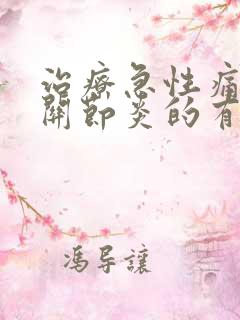 治療急性痛
關節炎的有
馮导讓